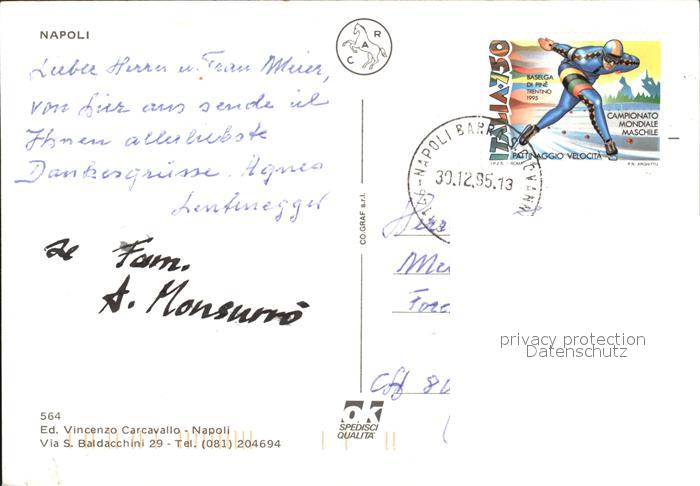 NAPOLI
Liebe Herrn u. Frau Meier,
von hier aus sende ich
Ihnen allerliebste
Dankesgrüsse. Agnes
e Fam.
A. Monsurrò
564
Ed. Vincenzo Carcavallo - Napoli
Via S. Baldacchini 29 - Tel. (081) 204694
C A R
CO.GRAF s.r.l.
ok
SPEDISCI
QUALITA'
ITALIA 750
BASELGA
DI PINÈ
TRENTINO
1995
CAMPIONATO
MONDIALE
MASCHILE
PATTINAGGIO VELOCITÀ
I.P.Z.S. ROMA
NAPOLI BARRA
30.12.95.13
privacy protection
Datenschutz